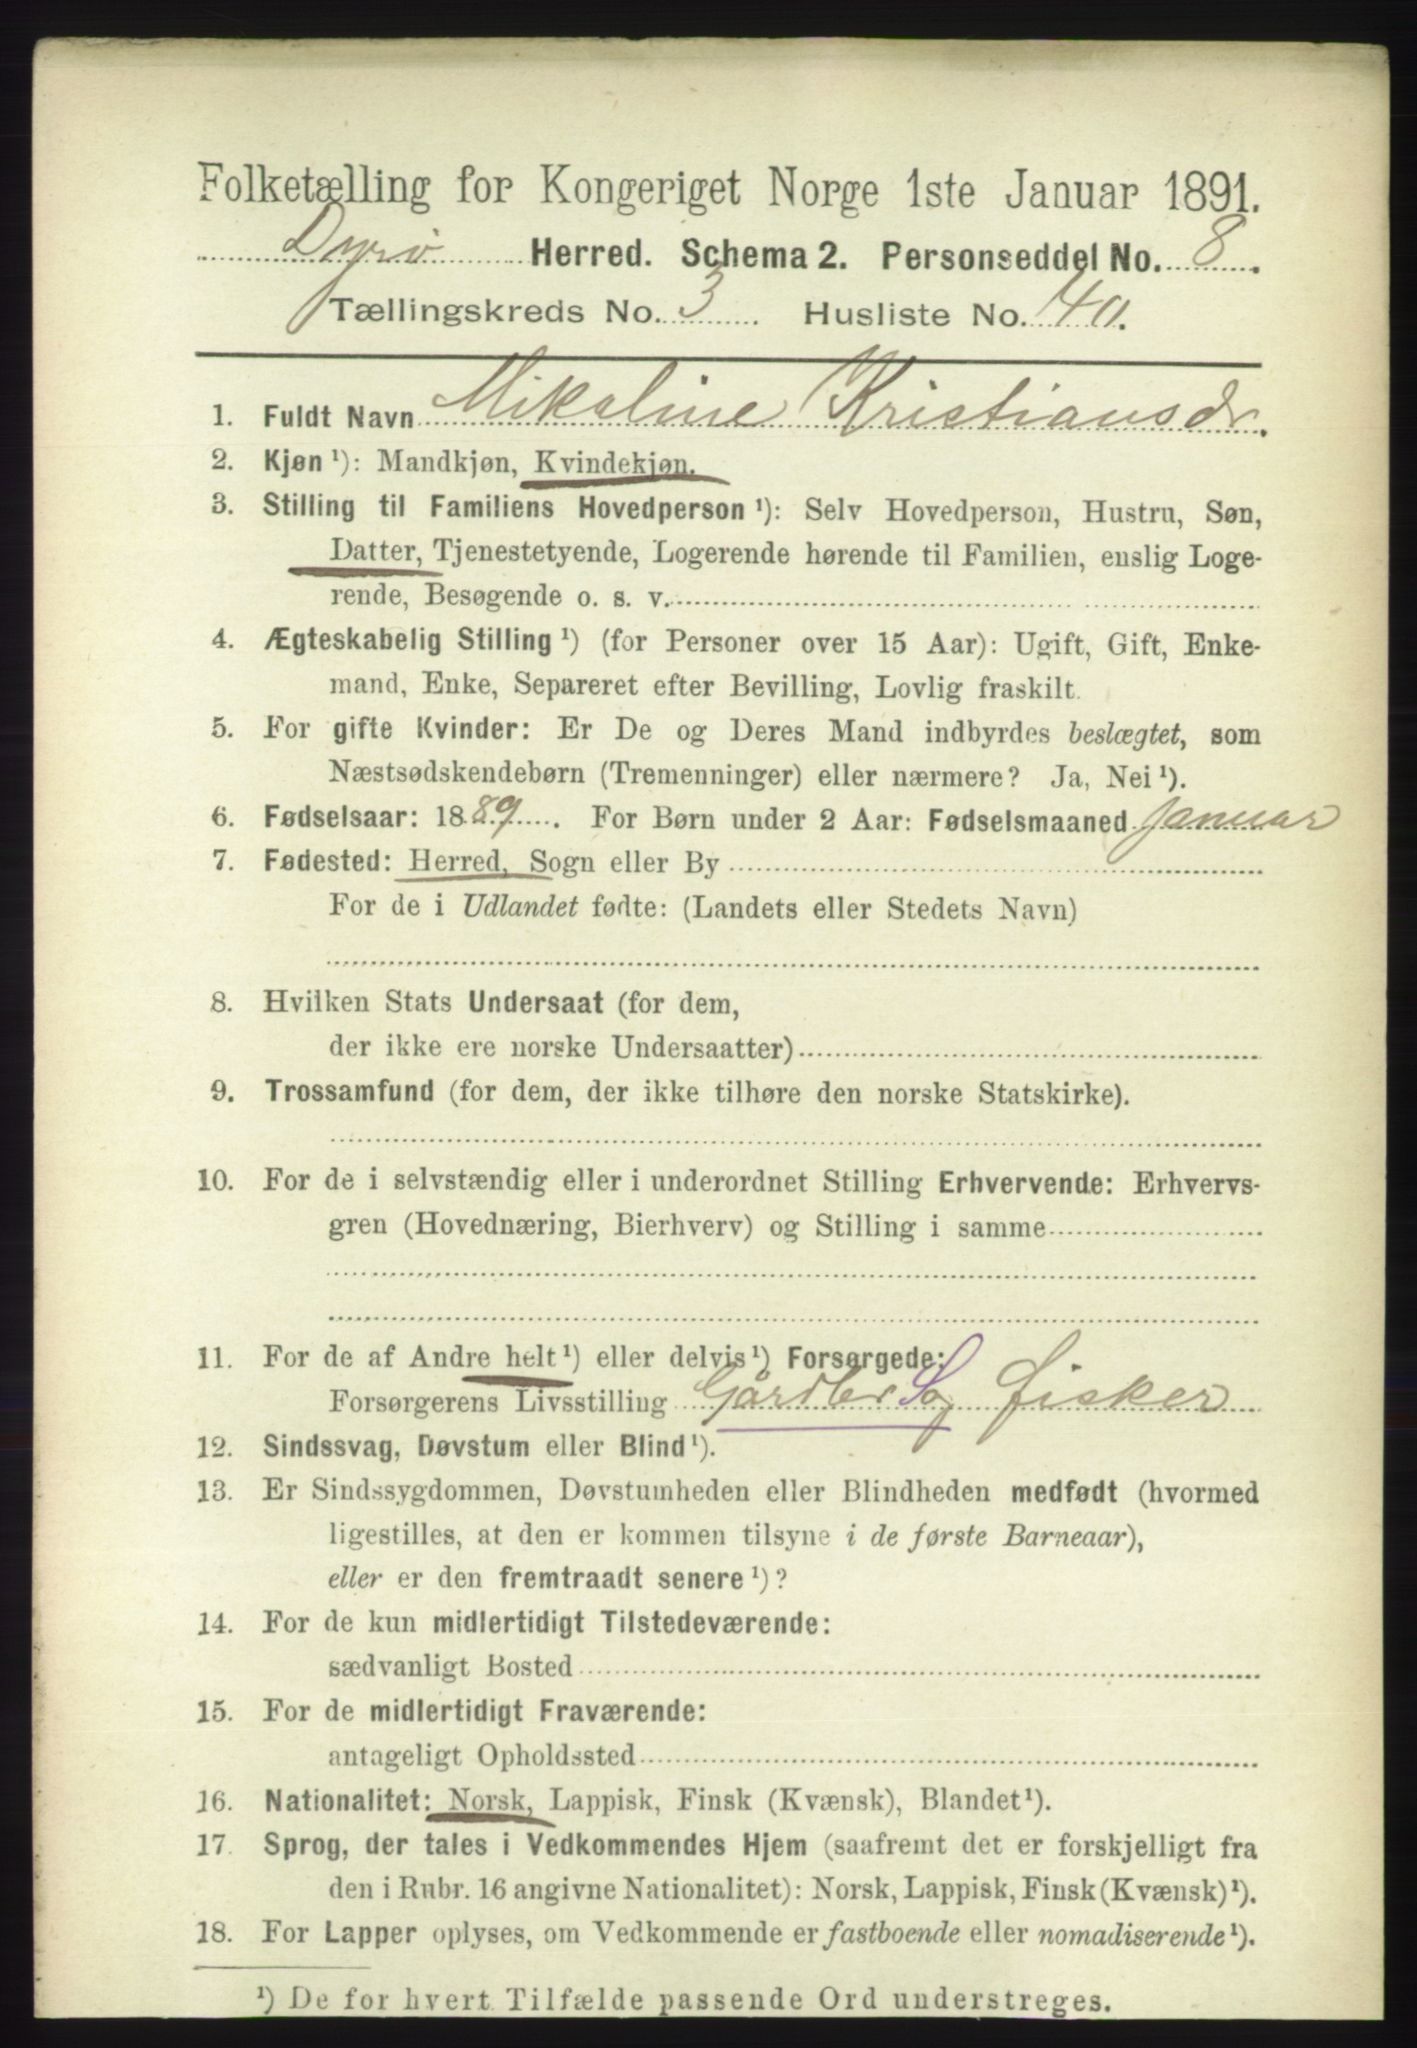 Folketælling for Kongeriget Norge 1ste Januar 1891.
Dyrø Herred. Schema 2. Personseddel No. 8.
Tællingskreds No. 3 Husliste No. 40.
1. Fuldt Navn Mikaline Kristiansdr.
2. Kjøn ¹): Mandkjøn, Kvindekjøn.
3. Stilling til Familiens Hovedperson ¹): Selv Hovedperson, Hustru, Søn,
Datter, Tjenestetyende, Logerende hørende til Familien, enslig Loge-
rende, Besøgende o. s. v.
4. Ægteskabelig Stilling ¹) (for Personer over 15 Aar): Ugift, Gift, Enke-
mand, Enke, Separeret efter Bevilling, Lovlig fraskilt.
5. For gifte Kvinder: Er De og Deres Mand indbyrdes beslægtet, som
Næstsødskendebørn (Tremenninger) eller nærmere? Ja, Nei ¹).
6. Fødselsaar: 1889. For Børn under 2 Aar: Fødselsmaaned Januar
7. Fødested: Herred, Sogn eller By
For de i Udlandet fødte: (Landets eller Stedets Navn)
8. Hvilken Stats Undersaat (for dem,
der ikke ere norske Undersaatter)
9. Trossamfund (for dem, der ikke tilhøre den norske Statskirke).
10. For de i selvstændig eller i underordnet Stilling Erhvervende: Erhvervs-
gren (Hovednæring, Bierhverv) og Stilling i samme
11. For de af Andre helt ¹) eller delvis ¹) Forsørgede:
Forsørgerens Livsstilling Gårdbr S og fisker
12. Sindssvag, Døvstum eller Blind ¹).
13. Er Sindssygdommen, Døvstumheden eller Blindheden medfødt (hvormed
ligestilles, at den er kommen tilsyne i de første Barneaar),
eller er den fremtraadt senere ¹)?
14. For de kun midlertidigt Tilstedeværende:
sædvanligt Bosted
15. For de midlertidigt Fraværende:
antageligt Opholdssted
16. Nationalitet: Norsk, Lappisk, Finsk (Kvænsk), Blandet ¹).
17. Sprog, der tales i Vedkommendes Hjem (saafremt det er forskjelligt fra
den i Rubr. 16 angivne Nationalitet): Norsk, Lappisk, Finsk (Kvænsk) ¹).
18. For Lapper oplyses, om Vedkommende er fastboende eller nomadiserende ¹).
¹) De for hvert Tilfælde passende Ord understreges.